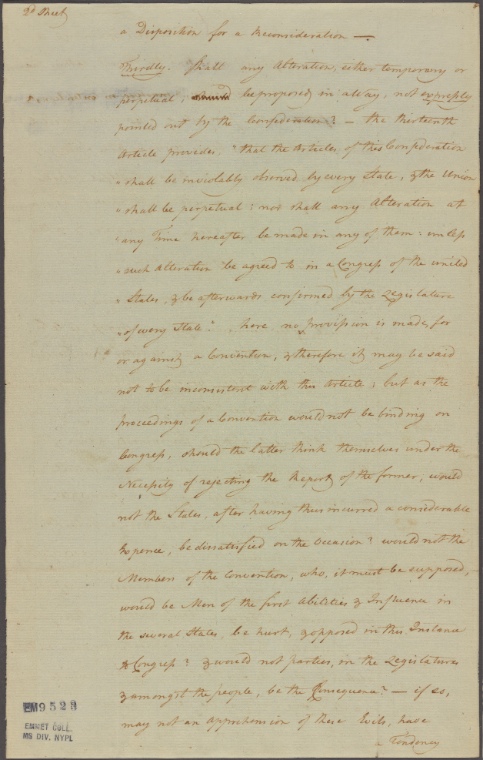 2d Sheet
a Disposition for a Reconsideration —.
Thirdly. Shall any Alteration, either temporary or
perpetual, be proposed in a Way, not expressly
pointed out by the Confederation? — the thirteenth
Article provides. "that the Articles of this Confederation
"shall be inviolably observed by every State, & the Union
"shall be perpetual: nor shall any Alteration at
"any Time hereafter be made in any of them: unless
"such Alteration be agreed to in a Congress of the united
"States, & be afterwards confirmed by the Legislature
"of every State." here no provision is made, for
or against a Convention, & therefore it may be said
not to be inconsistent with this Article; but as the
proceedings of a Convention would not be binding on
Congress, should the latter think themselves under the
Necessity of rejecting the Report of the former, would
not the States, after having thus incurred a considerable
Expence, be dissatisfied on the Occasion? would not the
Members of the Convention, who, it must be supposed,
would be Men of the first Abilities & Influence in
the several States, be hurt, & opposed in this Instance
to Congress? & would not parties, in the Legislatures
& amongst the people, be the Consequence? — if so,
may not an apprehension of these Evils, have
Tendency
EM9523
EMMET COLL.
MS DIV. NYPL